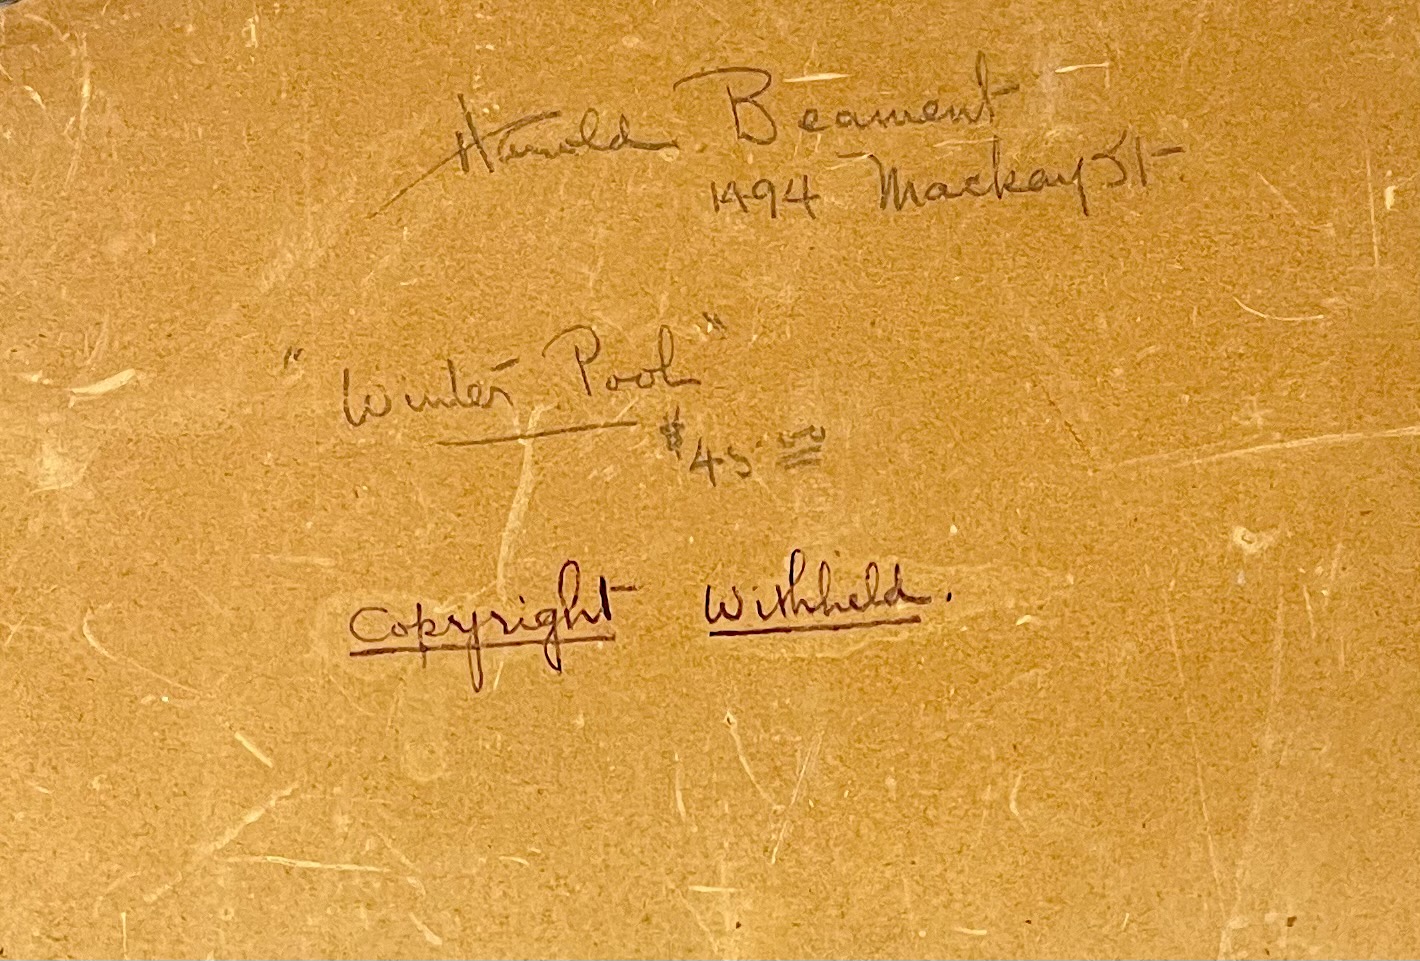 Harold Beament
1494 Mackay St.
"Winter Pool"
$45.00
Copyright Withheld.